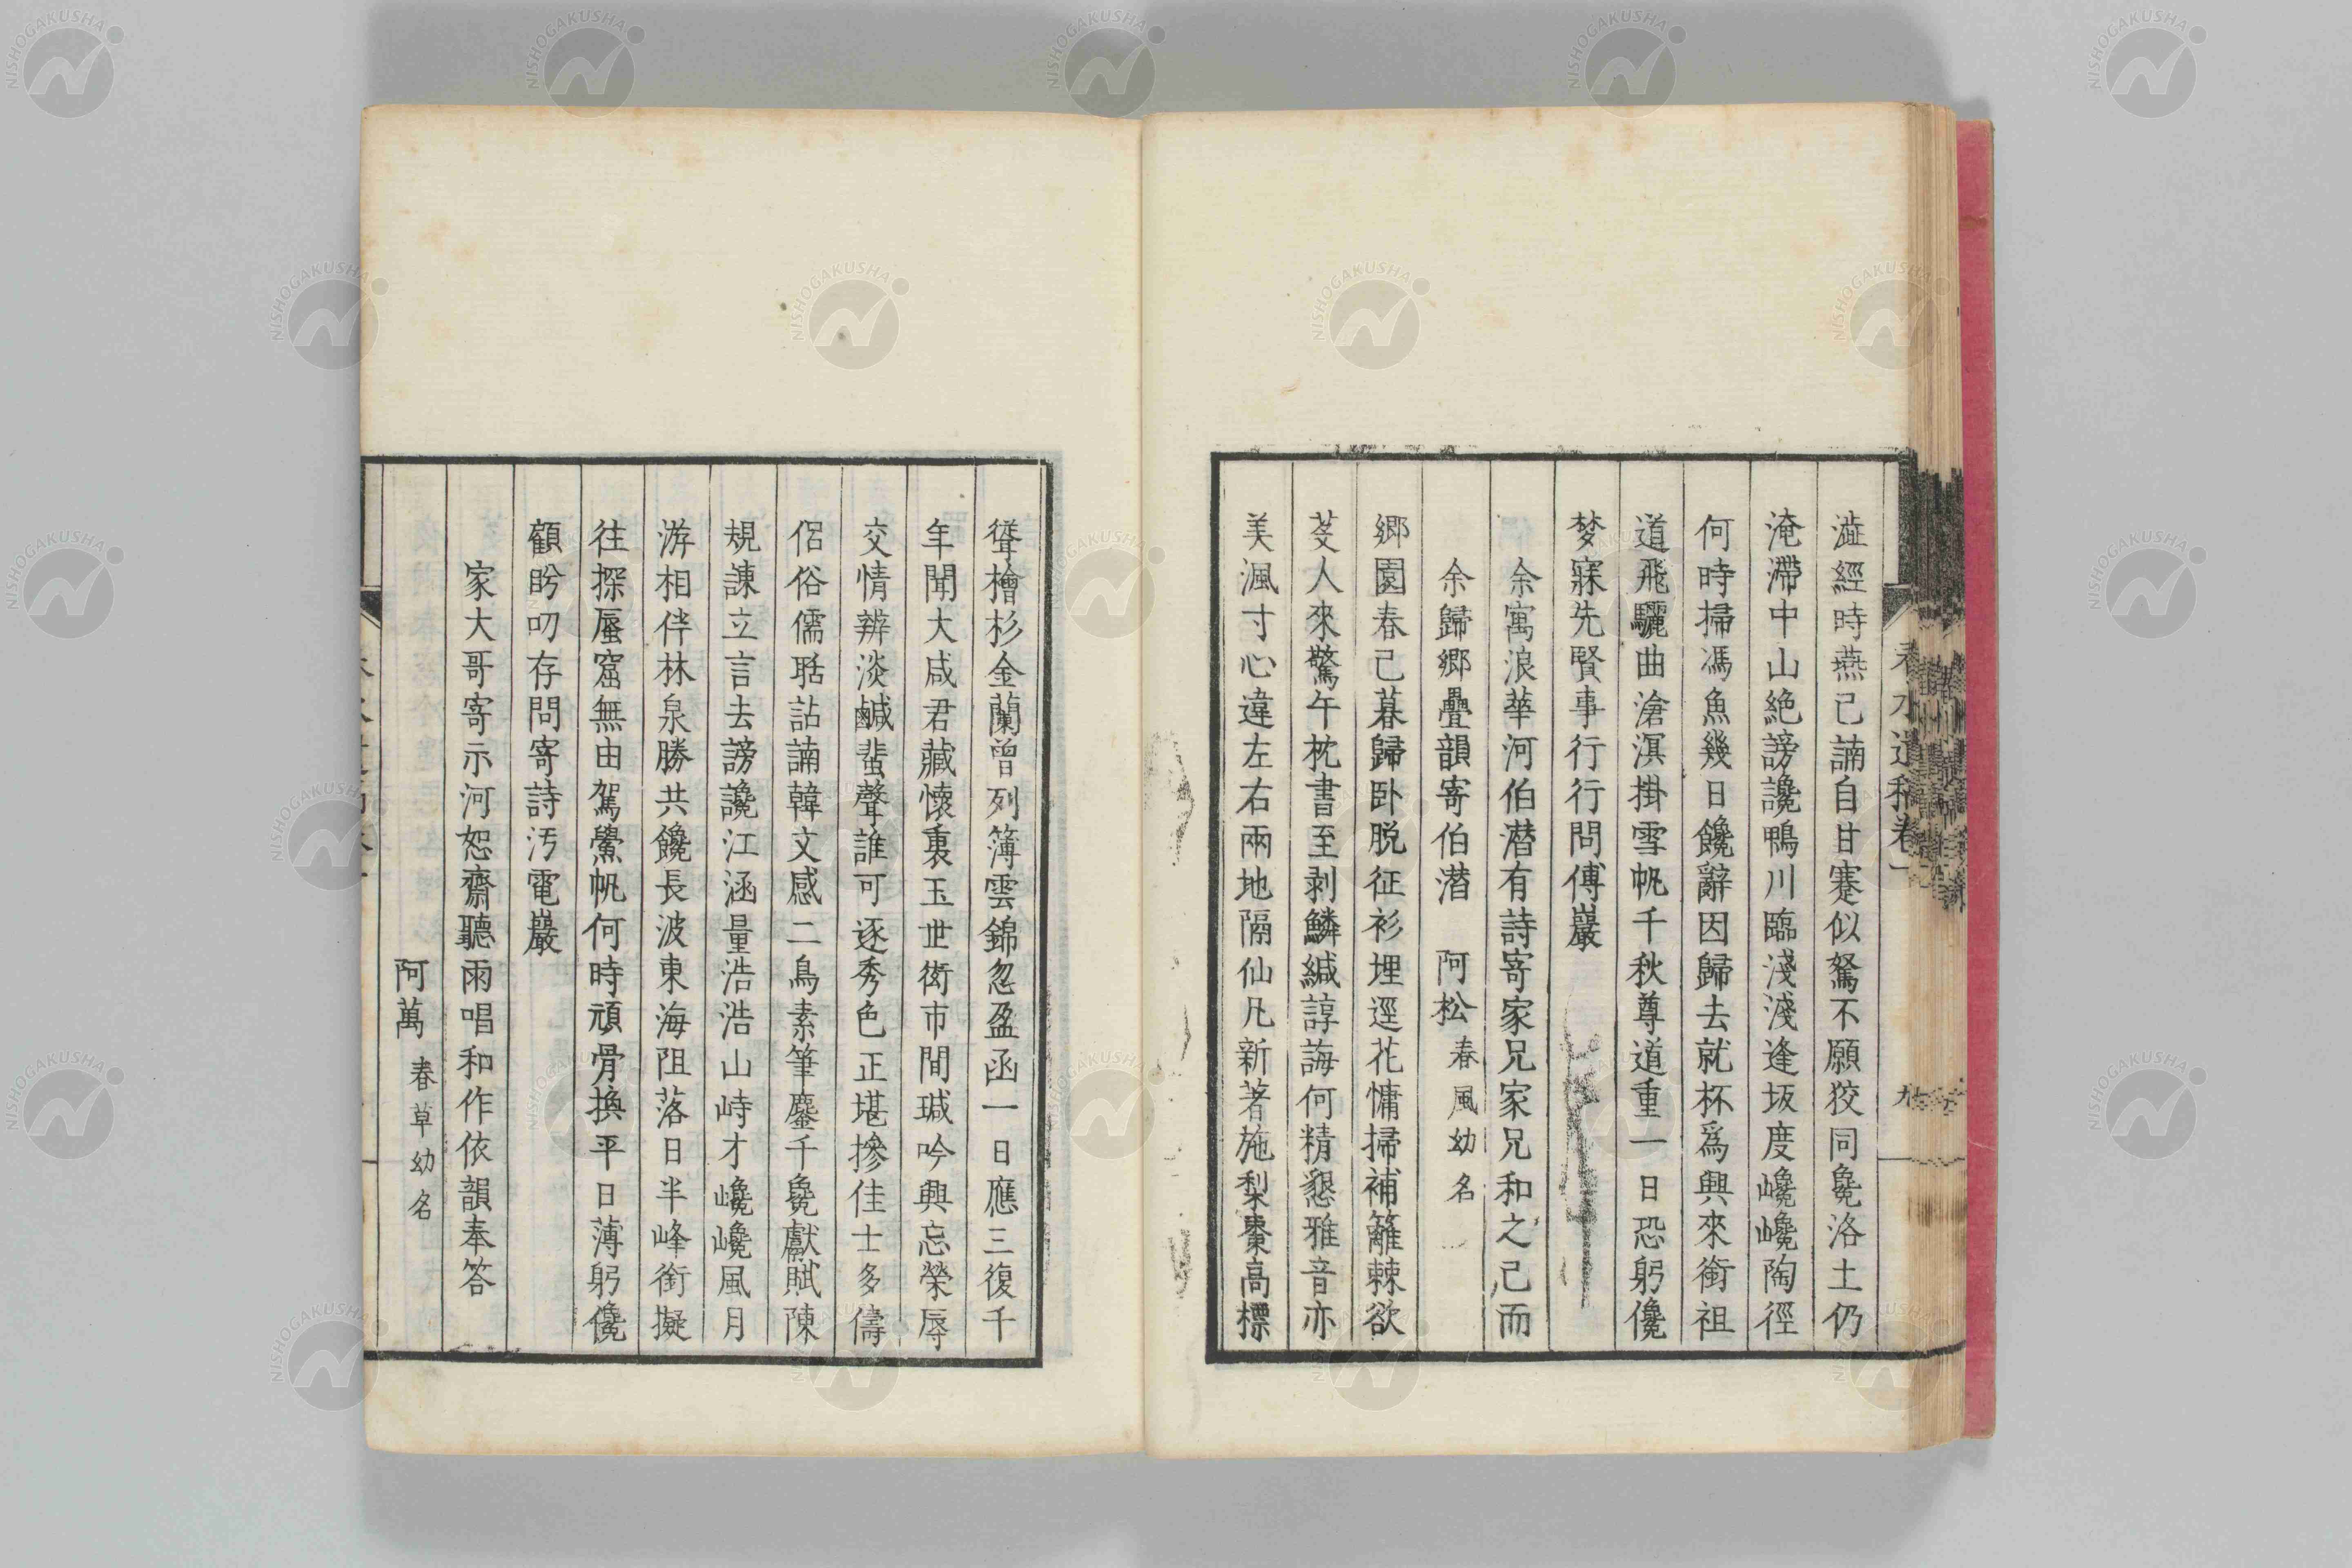 春水遺稿卷一
九
澁經時燕已諵自甘蹇似駑不願狡同毚洛土仍
淹滯中山絶謗讒鴨川臨淺淺逢坂度巉巉陶徑
何時掃馮魚幾日饞辭因歸去就杯爲興來銜祖
道飛驪曲滄溟掛雪帆千秋尊道重一日恐躬儳
梦寐先賢事行行問傅巖
余寓浪華河伯潜有詩寄家兄家兄和之已而
余歸郷疊韻寄伯潜 阿松 春風幼名
郷園春已暮歸臥脱征衫埋逕花慵掃補籬棘欲
芟人來驚午枕書至剥鱗緘諄誨何精懇雅音亦
美渢寸心違左右兩地隔仙凡新著施梨棗高標
聳檜杉金蘭曾列簿雲錦忽盈函一日應三復千
年聞大咸君藏懷裏玉世衒市間瑊吟興忘榮辱
交情辨淡鹹蜚聲誰可逐秀色正堪摻佳士多儔
侶俗儒聒詀諵韓文感二鳥素筆鏖千毚獻賦陳
規諫立言去謗讒江涵量浩浩山峙才巉巉風月
游相伴林泉勝共饞長波東海阻落日半峰銜擬
往探蜃窟無由駕鱟帆何時頑骨換平日薄躬儳
顧眄叨存問寄詩汚電巖
家大哥寄示河恕齋聽雨唱和作依韻奉答
阿萬 春草幼名